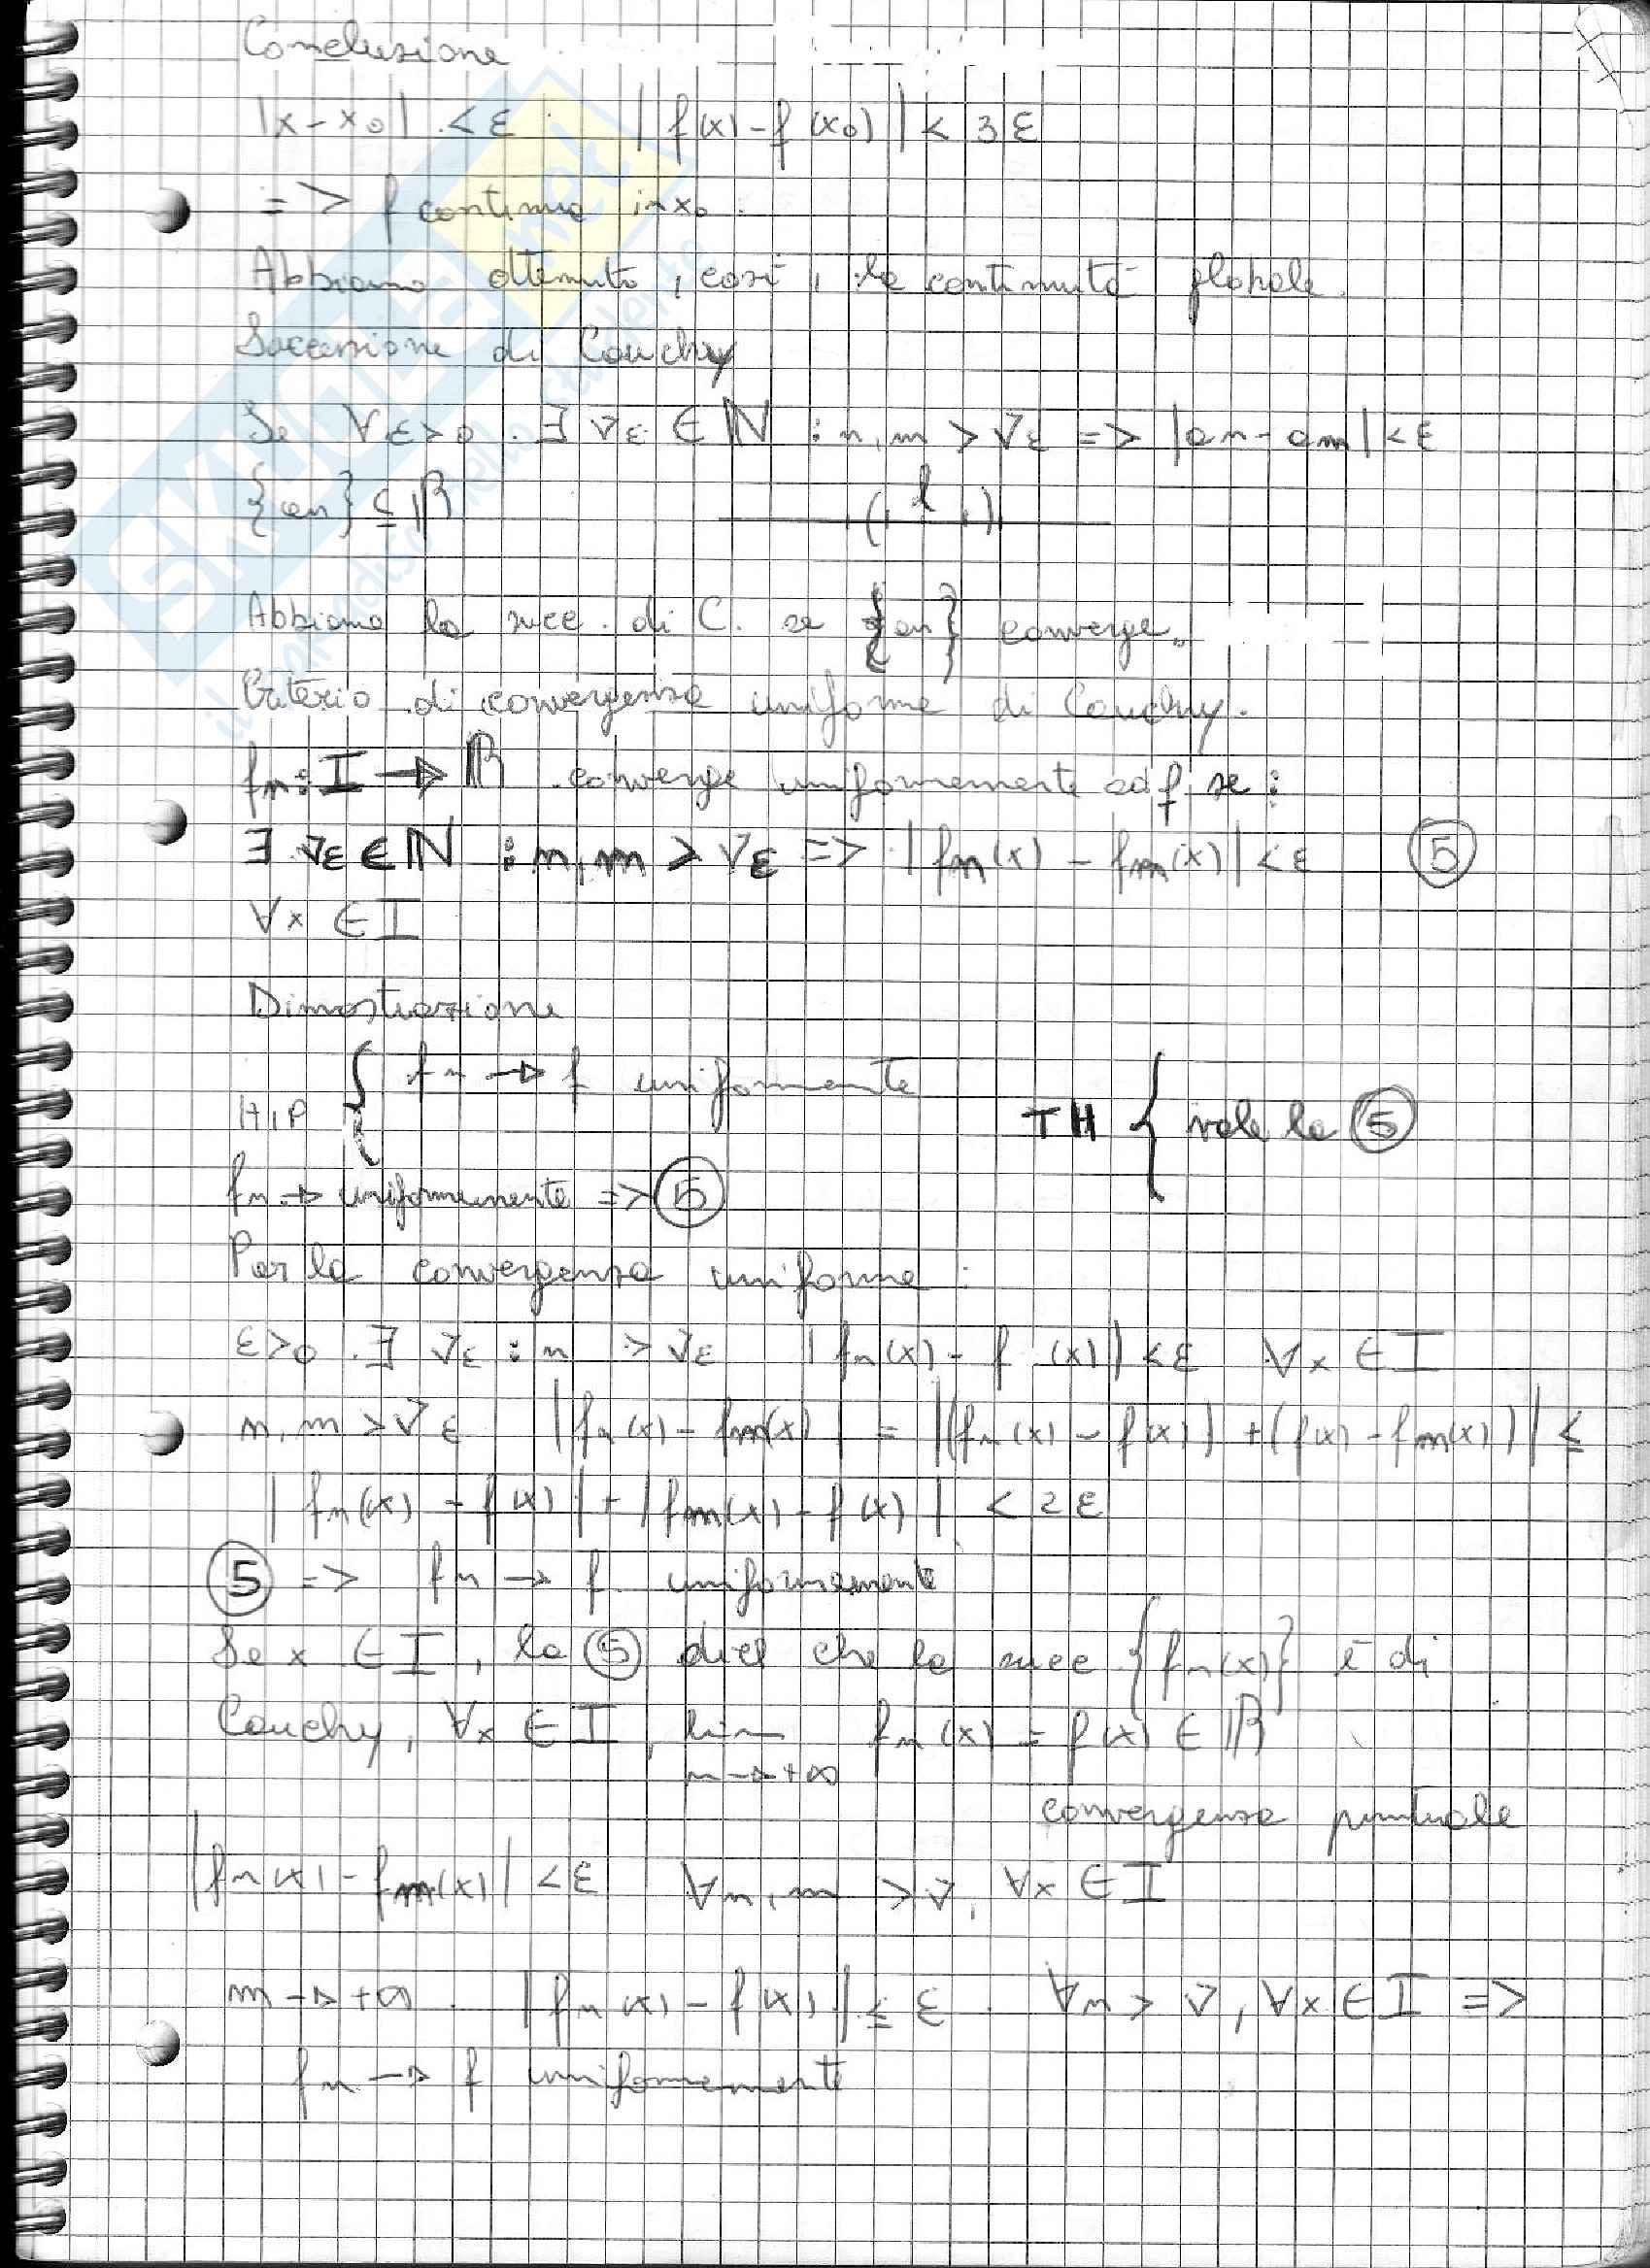 Conclusione
|x-x₀| < ε |f(x)-f(x₀)| < 3ε
=> f continua in x₀.
Abbiamo ottenuto, così, la continuità globale.
Successione di Cauchy
Se ∀ε>0 ∃ νε ∈ ℕ : n,m > νε => |an-am| < ε
{an} ⊆ ℝ ( l )
Abbiamo la succ. di C. se {an} converge.
Criterio di convergenza uniforme di Cauchy.
fn: I → ℝ converge uniformemente ad f se:
∃ νε ∈ ℕ : n,m > νε => |fn(x) - fm(x)| < ε ⑤
∀x ∈ I
Dimostrazione
HIP { fn → f uniformemente TH { vale la ⑤
fn → uniformemente => ⑤
Per la convergenza uniforme:
ε>0 ∃ νε : n > νε |fn(x) - f(x)| < ε ∀x ∈ I
n,m > νε |fn(x) - fm(x)| = |(fn(x) - f(x)) + (f(x) - fm(x))| ≤
|fn(x) - f(x)| + |fm(x) - f(x)| < 2ε
⑤ => fn → f uniformemente
Se x ∈ I, la ⑤ dice che la succ {fn(x)} è di
Cauchy, ∀x ∈ I, lim fn(x) = f(x) ∈ ℝ
n→+∞
convergenza puntuale
|fn(x) - fm(x)| < ε ∀n,m > ν, ∀x ∈ I
m→+∞ |fn(x) - f(x)| ≤ ε ∀n > ν, ∀x ∈ I =>
fn → f uniformemente